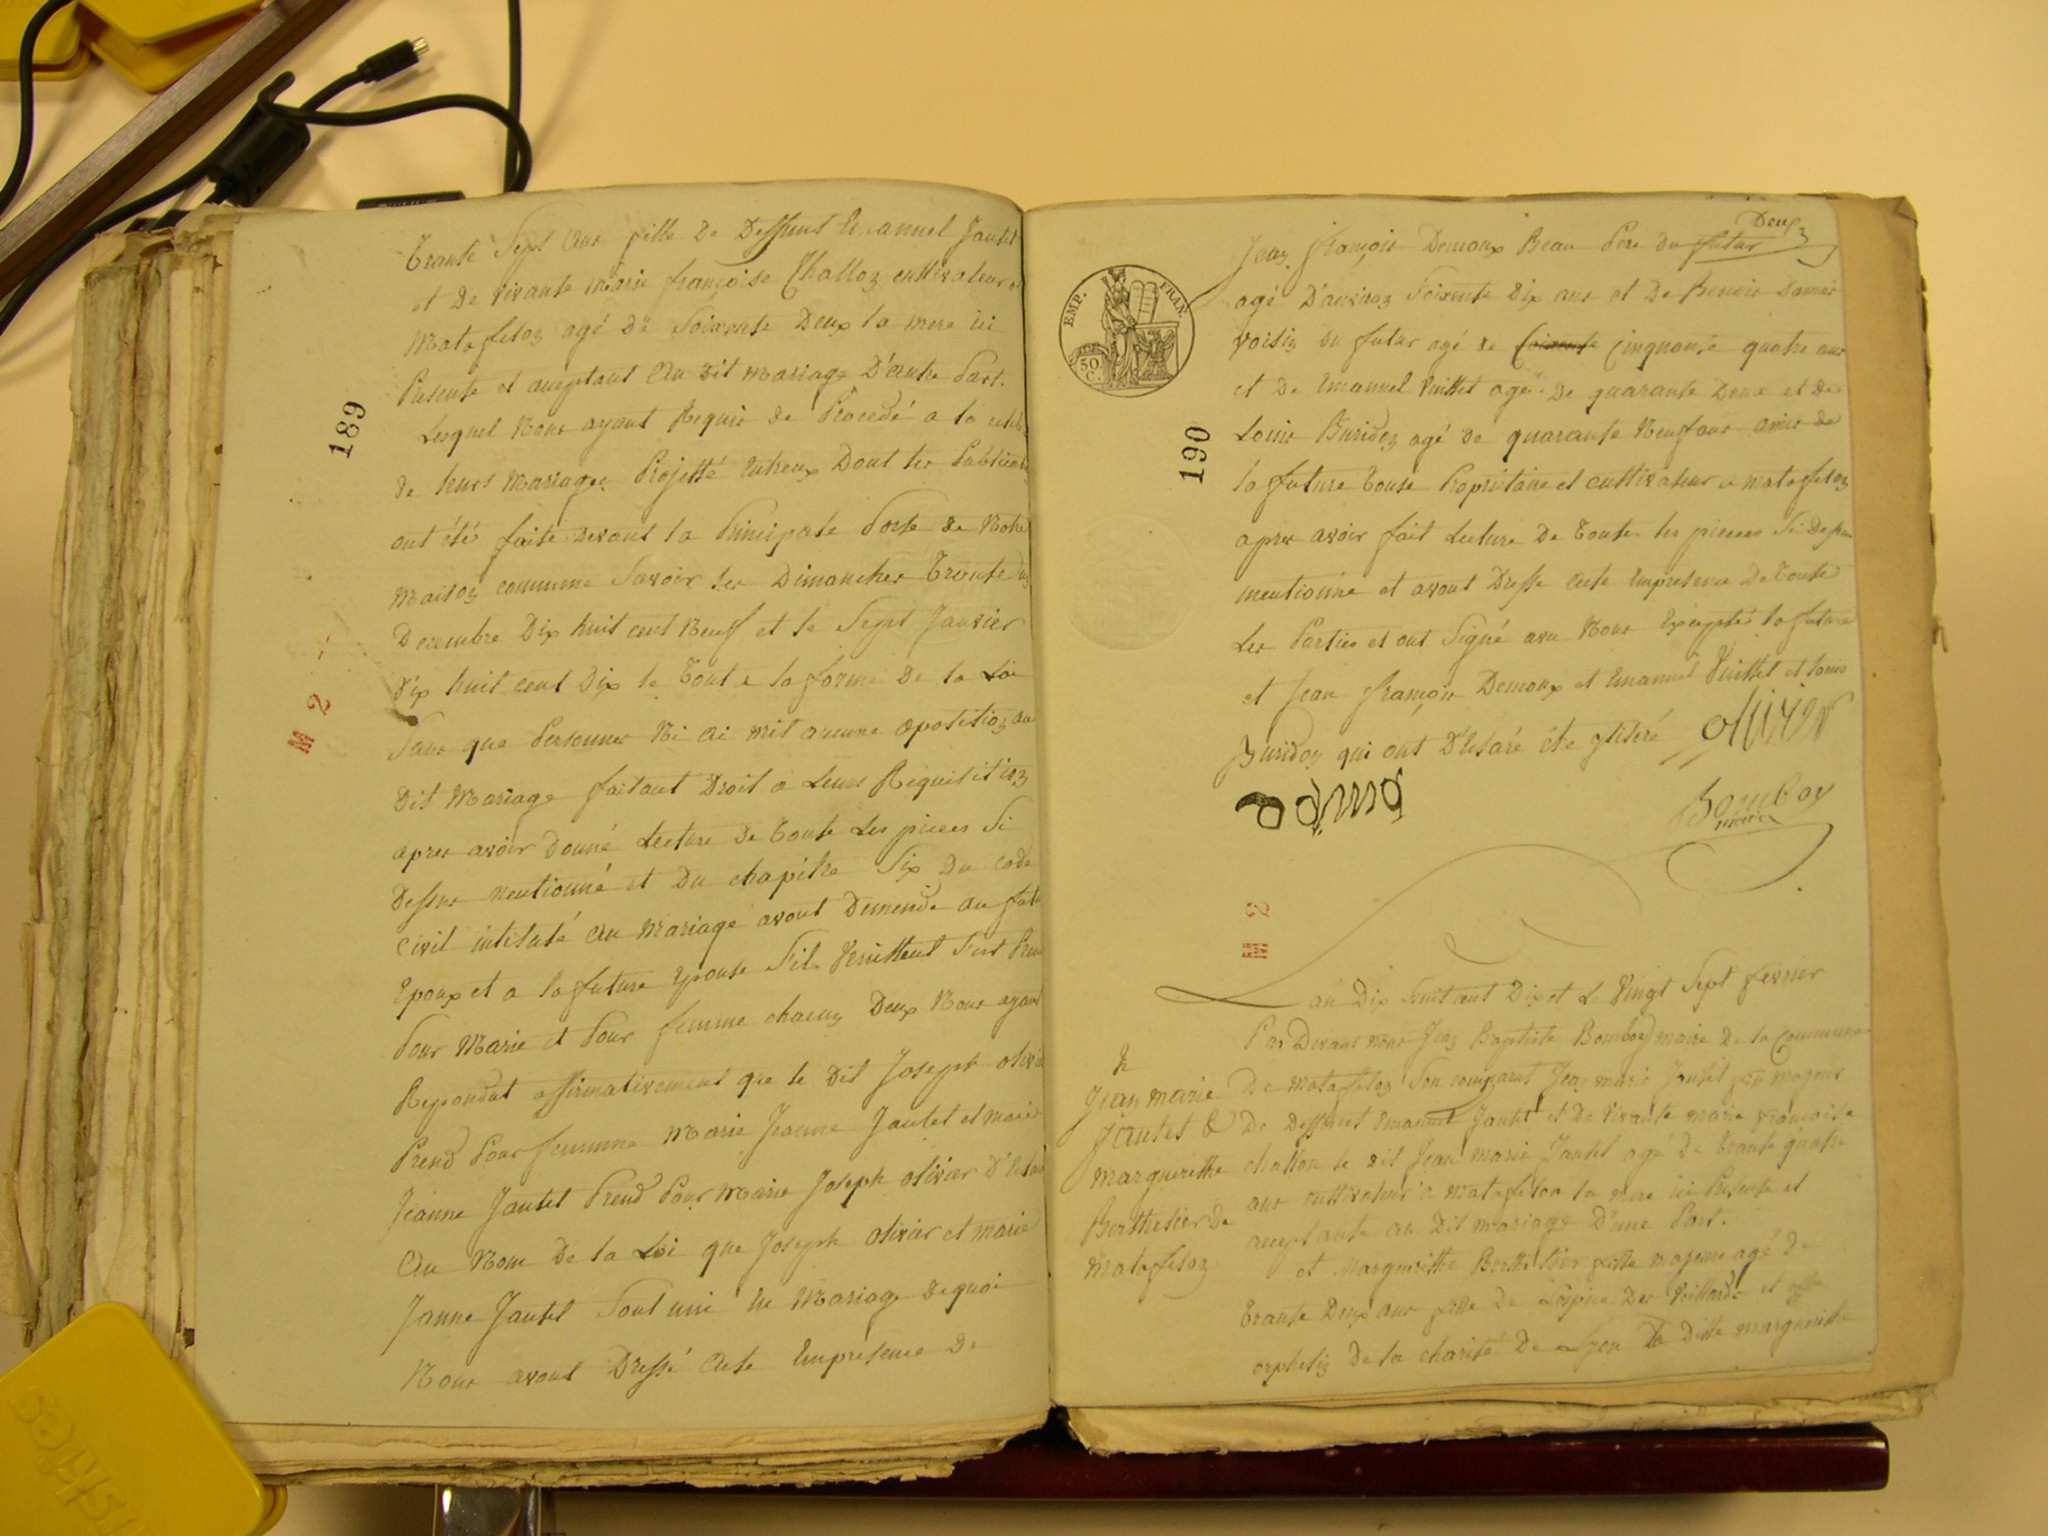 189
M 2
trante Sept ans fille de Deffunt Emanuel Jantet
et de vivante marie françoise Challoz cultivateur a
Matafeloz agé de Soixante Deux la mere ici
Presente et aceptant au dit mariage D'autre Part.
Lesquel Nous ayant Requis de Procedé a la celeb
de leurs Mariages Projetté Entreux Dont les Publica
ont été faite devant la Principale Porte de Notre
maison commune Savoir les Dimanches Trante un
Decembre Dix huit cent Neuf et le Sept Janvier
Dix huit cent Dix le Tout a la forme de la Loi
Sans que Personnes Ni ai mit aucune opositioz au
Dit Mariage faisant Droit a Leurs Requisitioz
apres avoir Donné Lecture de toute Les pieces Si
Dessus mentionné et Du chapitre Six Du code
Civil intitulé au Mariage avont Demendé au fut
Epoux et a la future Epouse Sil Veuillent Sert Pren
Pour Marie et Pour femme chacuz Deux Nous ayant
Repondut affirmativement que le Dit Joseph olivie
Prend Pour femme Marie Jeanne Jantet et marie
Jeanne Jantet Prend Pour Marie Joseph olivier D'eclar
au Nom De la Loi que Joseph olivier et marie
Janne Jantet Sont uni En Mariage De quoi
Nous avont Dressé acte Empresence De
Deux
EMP. FRAN.
50 C.
190
Jean François Demoux Beau Pere du futur
agé D'auviroz Soixente Dix ans et De Benoit Damas
voisiz du futur agé de Soixante Cinquante quatre ans
et De Emanuel Vuittet agé De quarante Deux et De
Louis Buridoz agé de quarante Neuf ans amis de
la future Touse Propriétaire et cultivateur a matafeloz
apres avoir fait Lecture De toute les pieces Si Dessus
mentionné et avont Dressé acte Empresence De toute
Les Parties et ont Signé avec Nous Excepté la future
et Jean François Demoux et Emanuel Vuittet et Louis
Buridoz qui ont D'eclaré ete
olivier
Damas
Bomboy
maire
M 2
Lan Dix huit cent Dix et Le Vingt Sept fevrier
Par Devant nous Jeaz Baptiste Bomboy maire de la Commune
De matafeloz Son comparut Jeaz marie Jantet majeur
De Deffunt Emanuel Jantet et De Vivante marie Françoise
challon le dit Jean marie Jantet agé De trante quatre
ans cultivateur a matafeloz la mere ici Presente et
aceptante au Dit mariage D'une Part.
et Margueritte Berthelier fille majeure agé De
trante Deux ans fille De Lospice Des Viellards et
orpheliz De la charité De Lyon la Ditte margueritte
Jean marie
Jantet &
margueritte
Berthelier de
Matafeloz